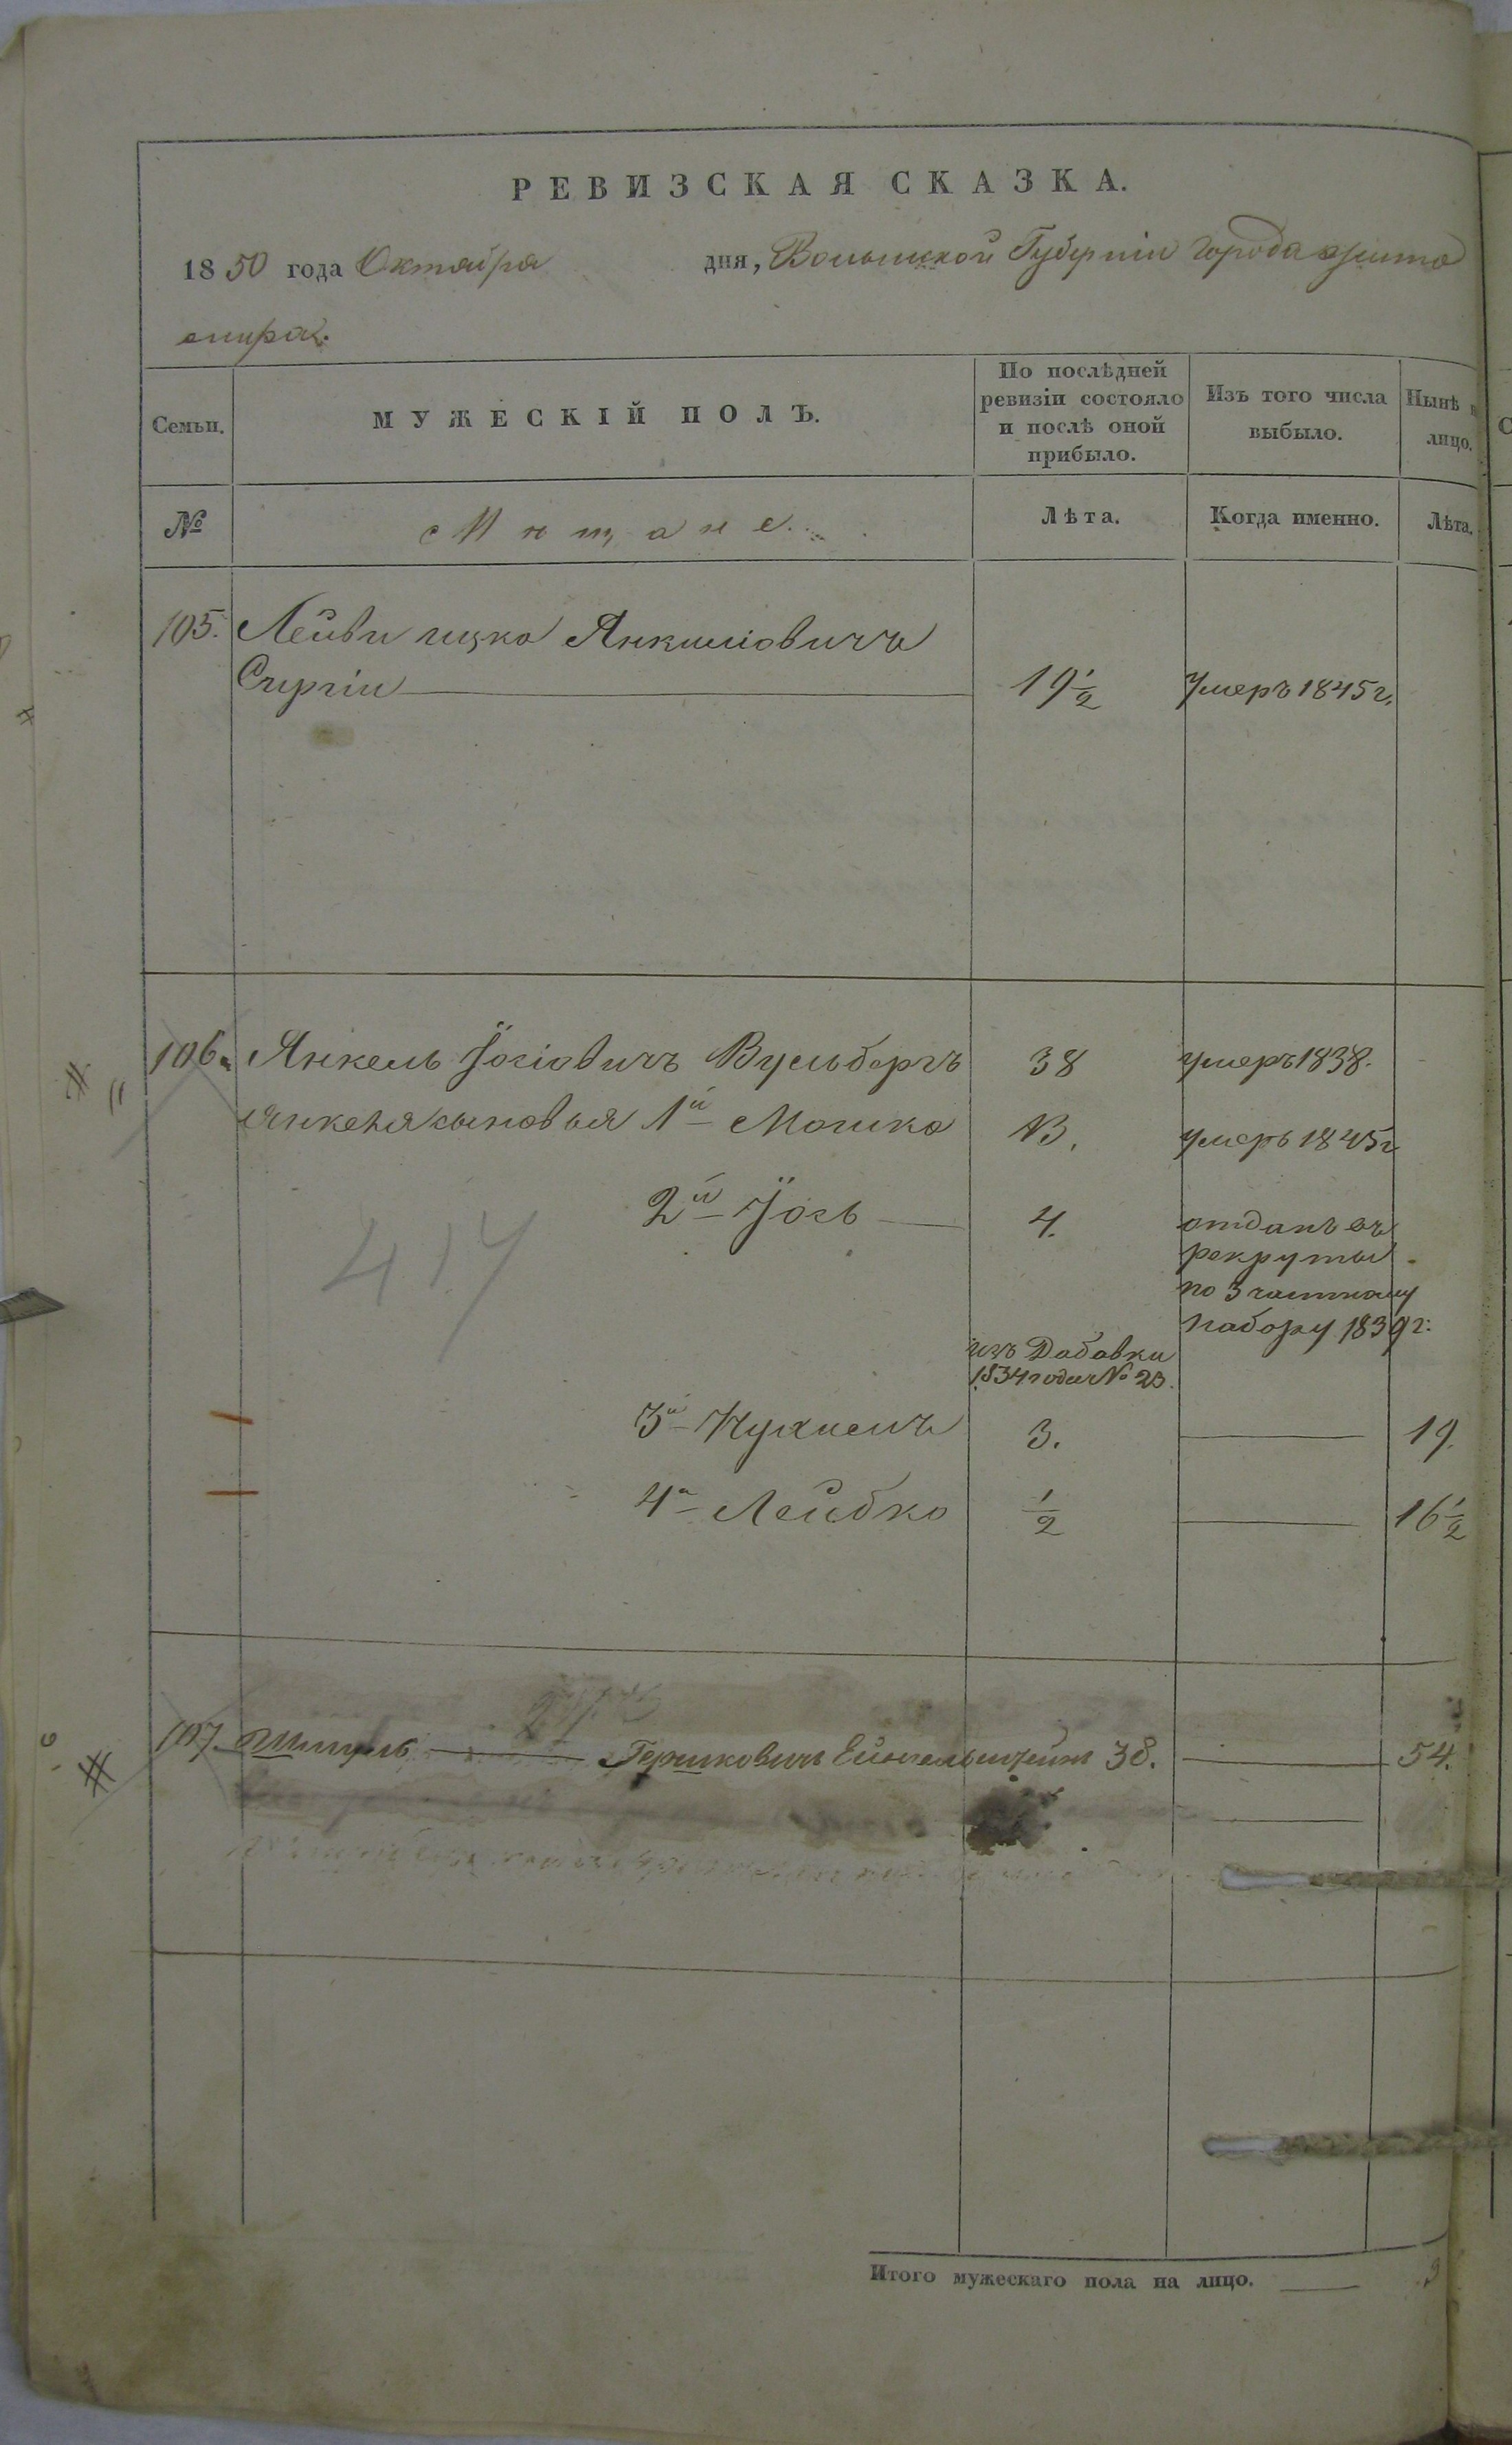 РЕВИЗСКАЯ СКАЗКА.
1850 года Октября дня, Волынской Губерніи города Жито
мира.
Семьи.
МУЖЕСКІЙ ПОЛЪ.
По послѣдней
ревизіи состояло
и послѣ оной
прибыло.
Изъ того числа
выбыло.
Нынѣ
лицо.
№
Мѣщане.
Лѣта.
Когда именно.
Лѣта.
105. Лейви ицко Янкиліовичъ
19½ умеръ 1845г.
106. Янкель Іосіовичъ Вульбергъ 38 умеръ 1838.
Янкеля сыновья 1й Мошко 13. умеръ 1845г
2й Іось 4. отданъ въ
рекруты
по 3 частному
набору 1839г:
417
изъ Добавки
1834 года № 23.
3й 3. 19.
4й Лейбко ½ 16½
107. Шмуль Гершковичъ 38. 54.
Итого мужескаго пола на лицо. 3